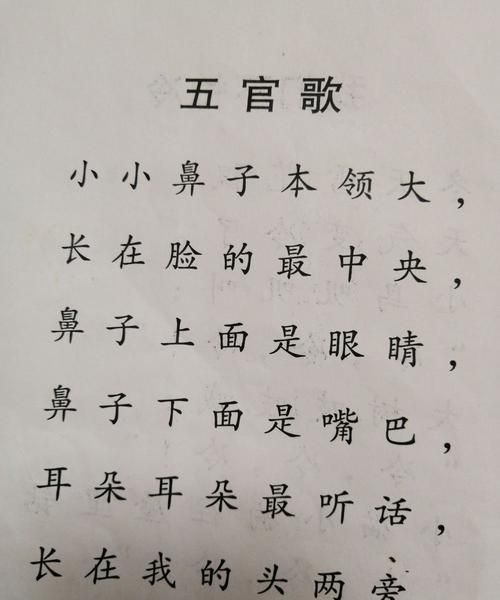 五官歌
小小鼻子本领大，
长在脸的最中央，
鼻子上面是眼睛，
鼻子下面是嘴巴，
耳朵耳朵最听话，
长在我的头两旁